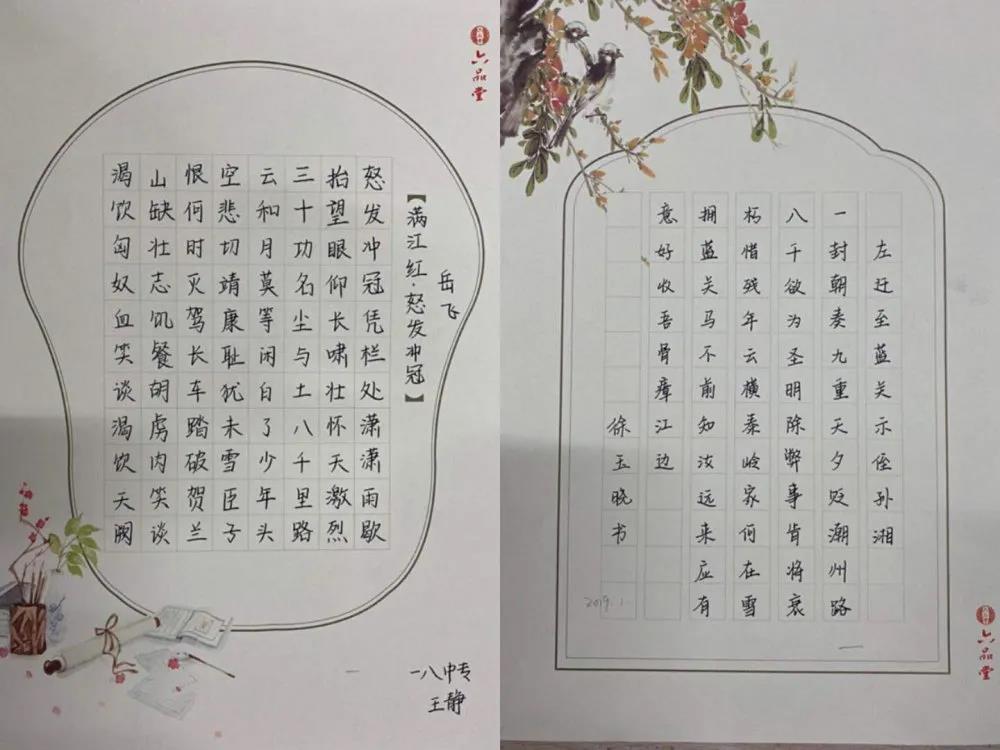 六品堂
【满江红·怒发冲冠】
岳飞
怒发冲冠凭栏处潇潇雨歇
抬望眼仰长啸壮怀天激烈
三十功名尘与土八千里路
云和月莫等闲白了少年头
空悲切靖康耻犹未雪臣子
恨何时灭驾长车踏破贺兰
山缺壮志饥餐胡虏肉笑谈
渴饮匈奴血笑谈渴饮天阙
一八中专
王静
左迁至蓝关示侄孙湘
一封朝奏九重天夕贬潮州路
八千欲为圣明除弊事肯将衰
朽惜残年云横秦岭家何在雪
拥蓝关马不前知汝远来应有
意好收吾骨瘴江边
徐玉晓书
2019.1.
六品堂